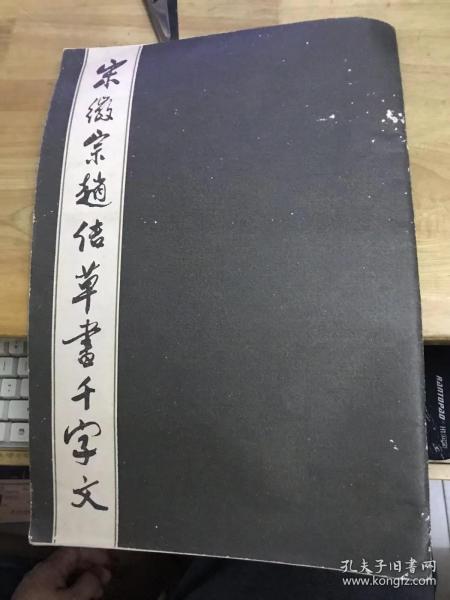 宋徽宗趙佶草書千字文
RANTOPAD
孔夫子旧书网
www.kongfz.com